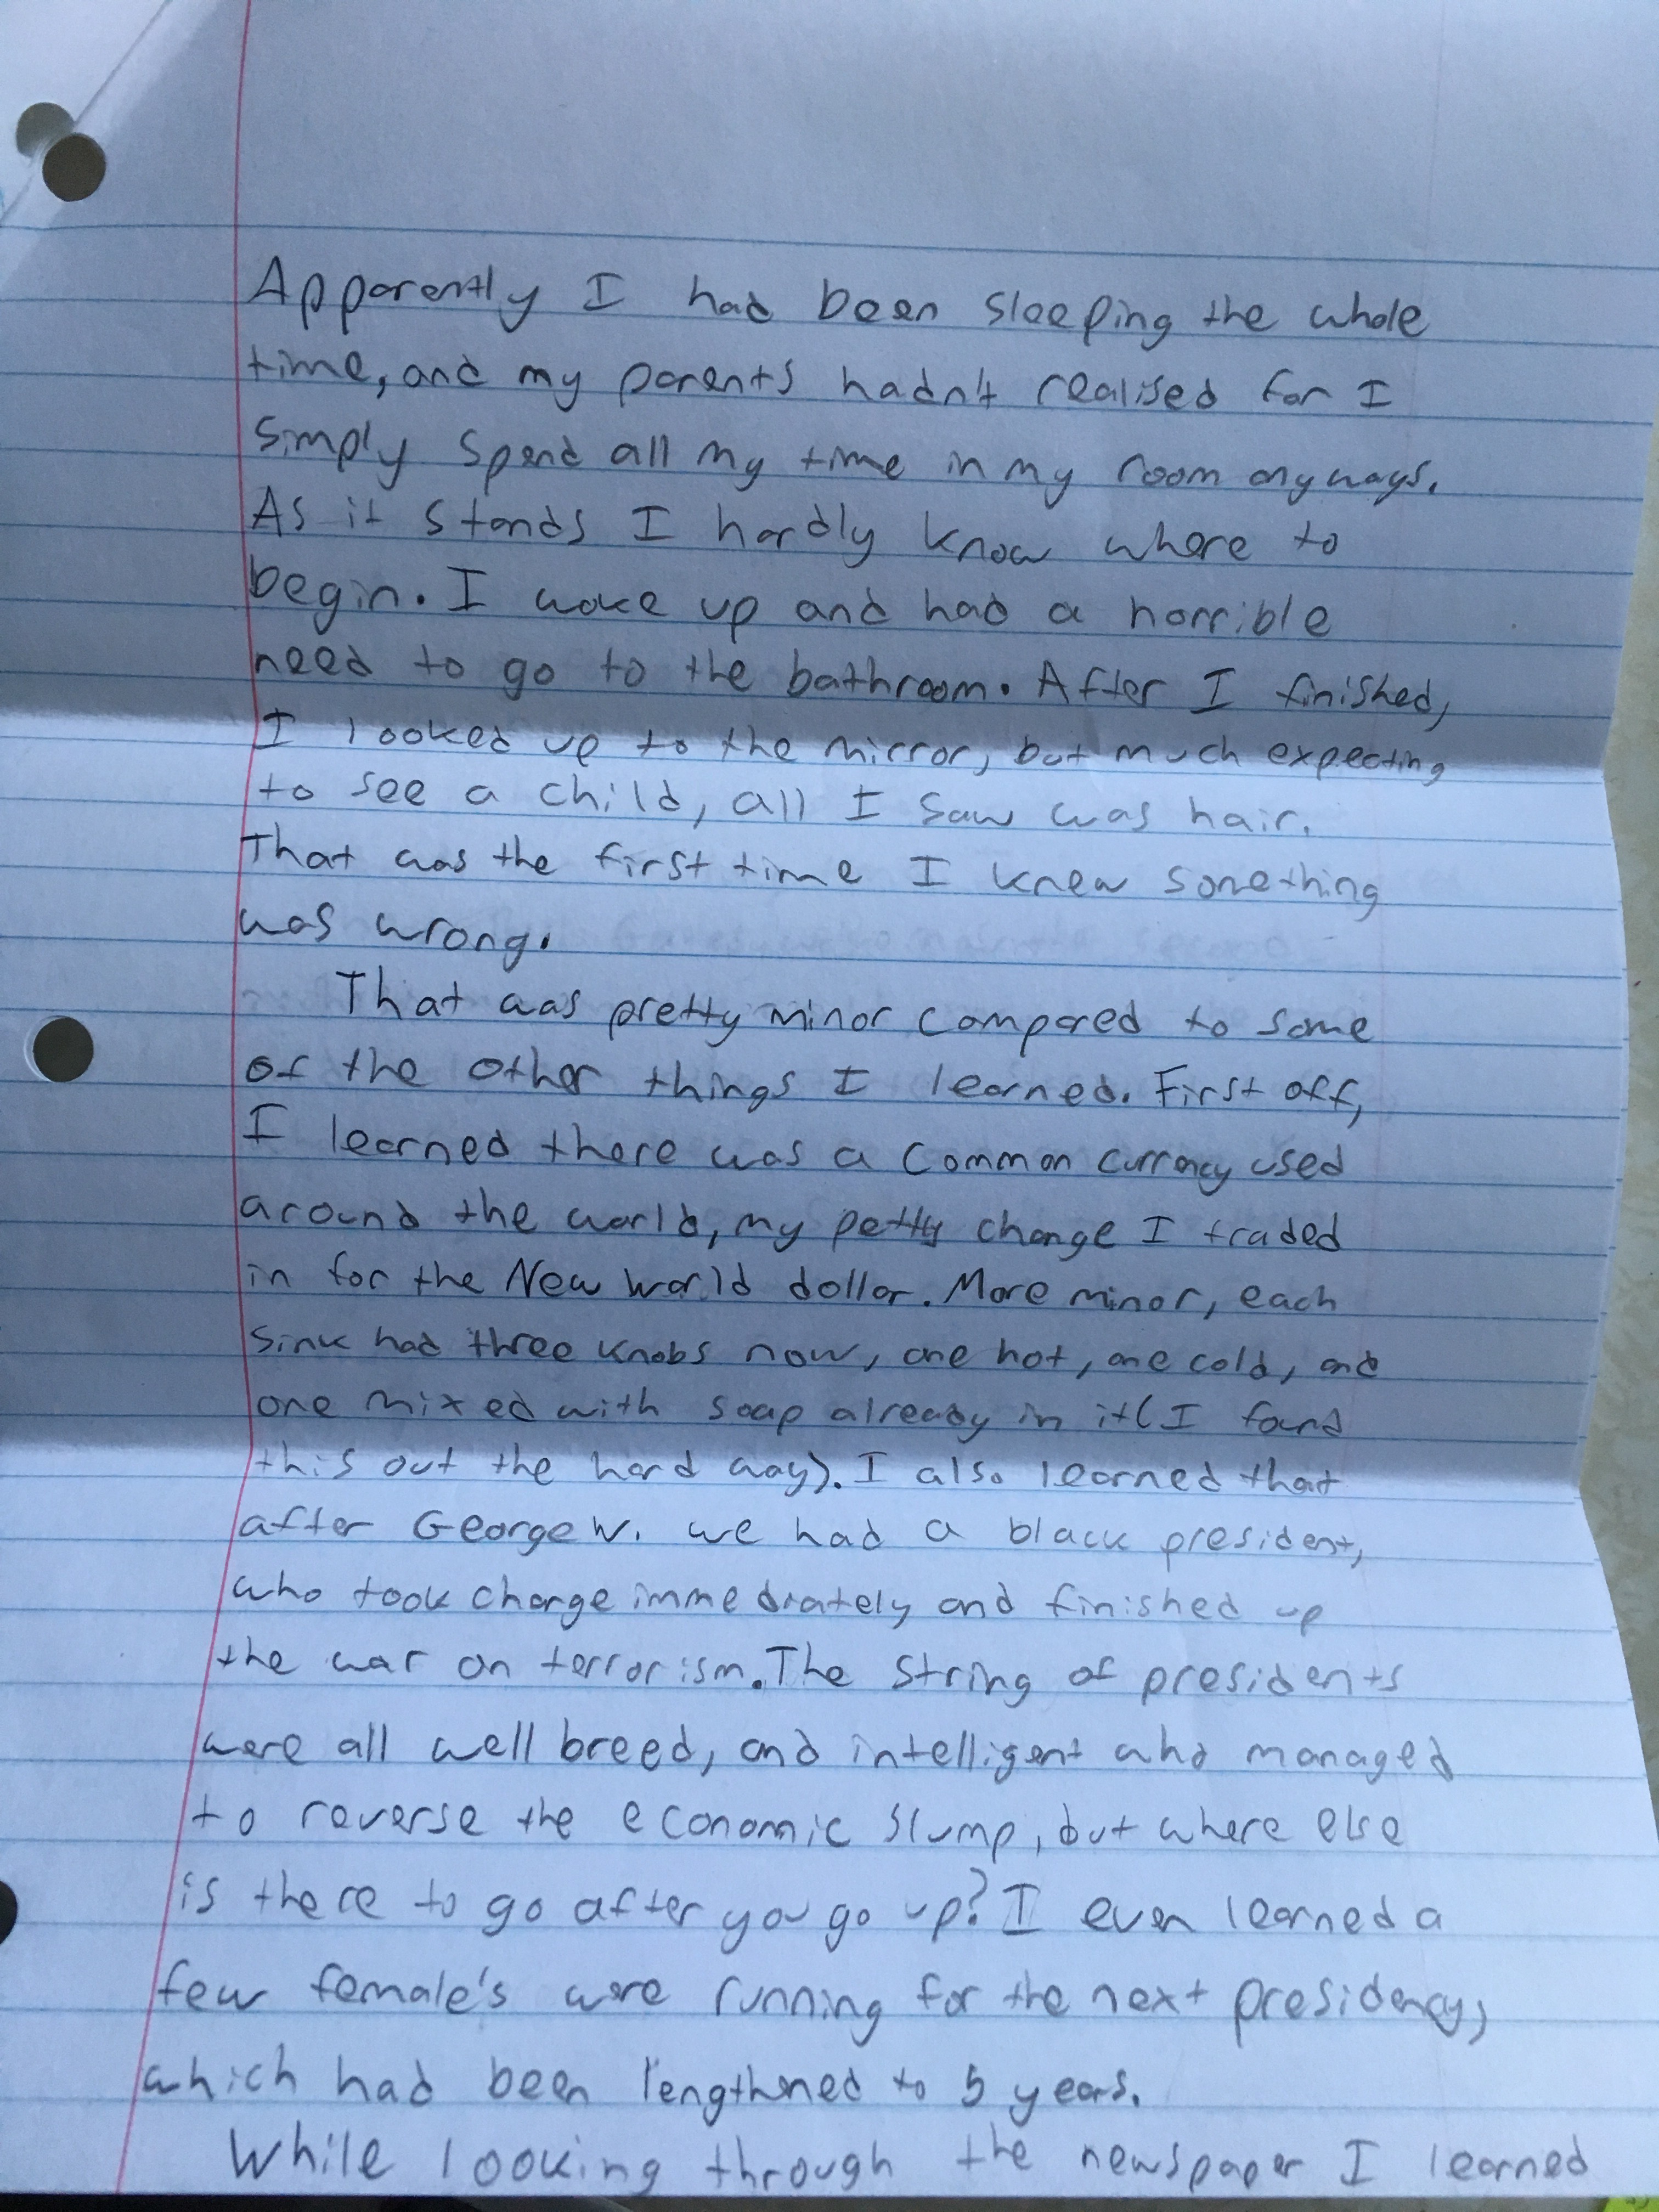 Apparently I had been sleeping the whole
time, and my parents hadn't realised for I
simply spend all my time in my room anyways.
As it stands I hardly know where to
begin. I woke up and had a horrible
need to go to the bathroom. After I finished,
I looked up to the mirror, but much expecting
to see a child, all I saw was hair.
That was the first time I knew something
was wrong.
That was pretty minor compared to some
of the other things I learned. First off,
I learned there was a common currency used
around the world, my petty change I traded
in for the New World dollar. More minor, each
sink had three knobs now, one hot, one cold, and
one mixed with soap already in it (I found
this out the hard way). I also learned that
after George W. we had a black president,
who took charge immediately and finished up
the war on terrorism. The string of presidents
were all well breed, and intelligent who managed
to reverse the economic slump, but where else
is there to go after you go up? I even learned a
few female's were running for the next presidency,
which had been lengthned to 5 years.
While looking through the newspaper I learned